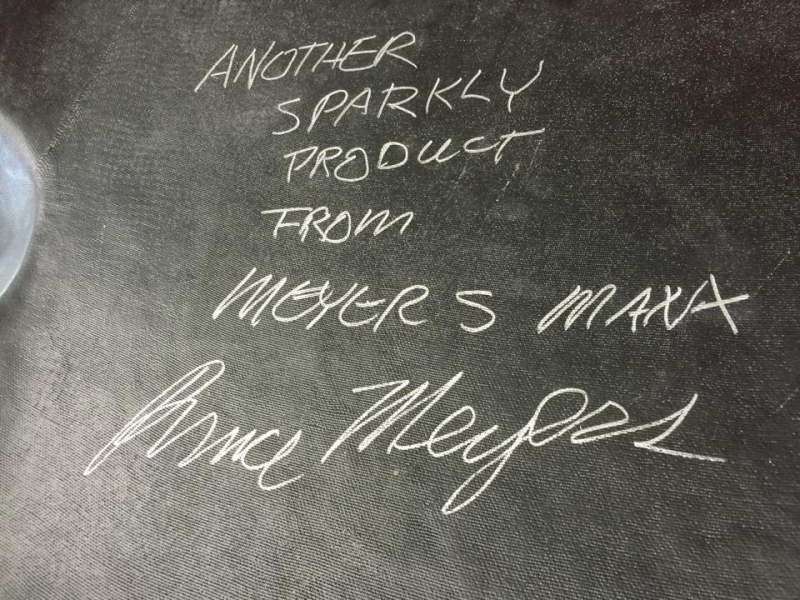 ANOTHER
SPARKLY
PRODUCT
FROM
MEYERS MANX
Bruce Meyers